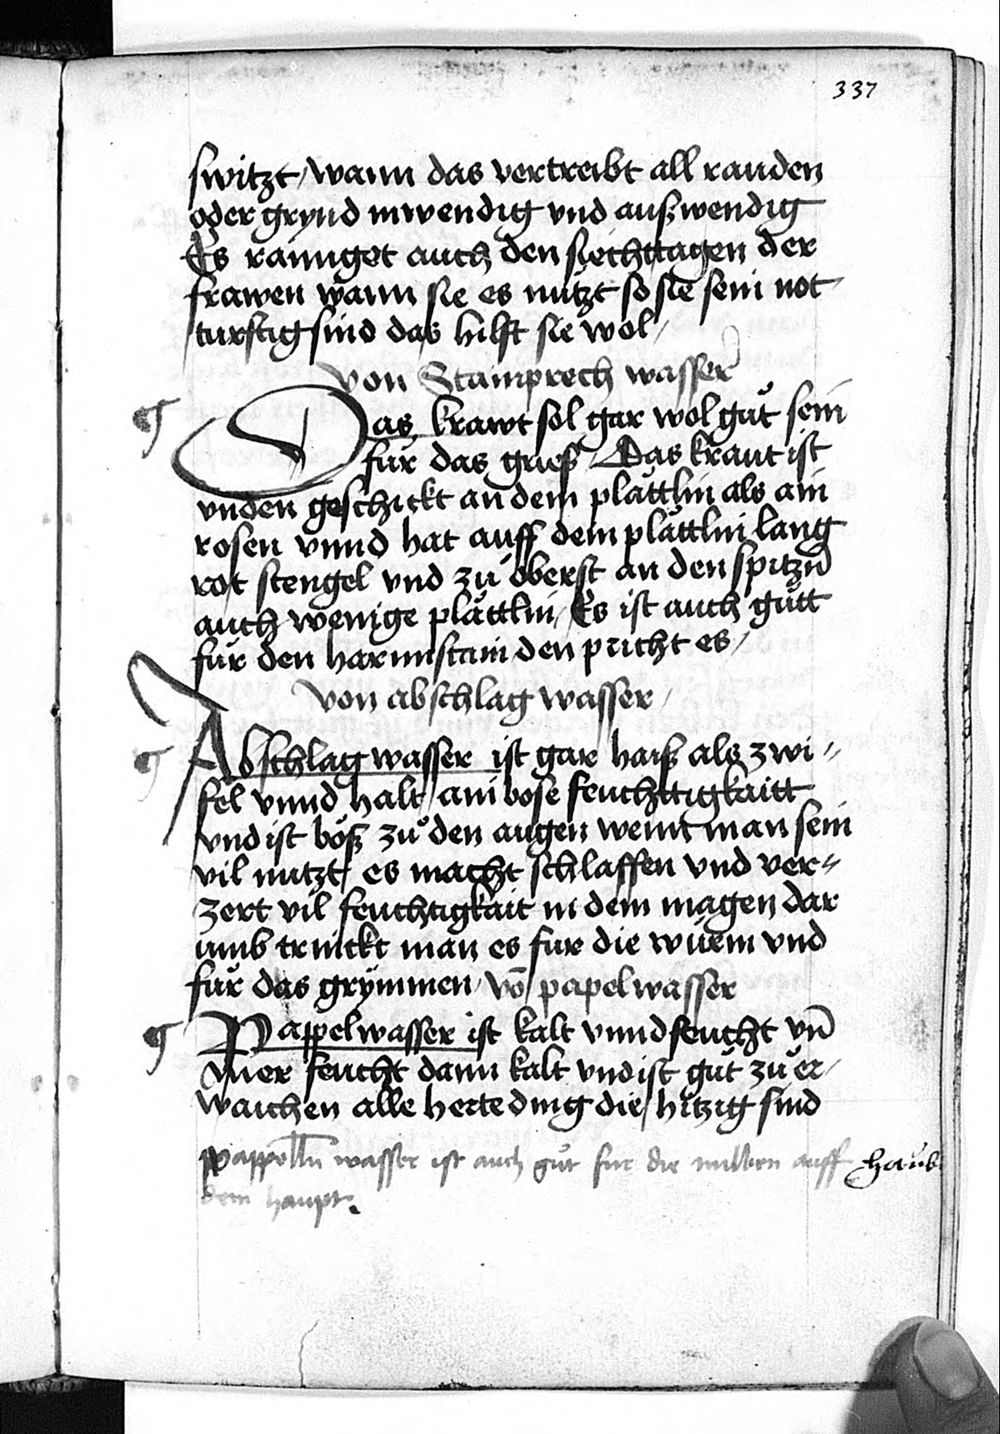 337
switzt / wann das vertreibt all rauden
oder grynd inwendig vnd außwendig
Es rainiget auch den siechttagen der
frawen wann sie es nützt so sie sein not
turftig sind das hilft sie wol /
von Stainprech wasser
Das krawt sol gar wol gůt sein
für das grieß / Das kraut ist
vnden geschickt an dem plåttlin als ain
rosen vnnd hat auff dem plåttlin lang
rot stengel vnd zů öberst an den spitzn̄
auch wenige plåttlin / Es ist auch gůtt
für den harmstain den pricht es /
von abschlag wasser /
Abschlag wasser ist gar haiß als zwi〃
fel vnnd halt ain böse feuchttigkaitt
vnd ist böß zů den augen wennt man sein
vil nutzt es macht schlaffen vnd ver〃
zert vil feuchtigkait in dem magen dar
umb trinckt man es fur die würm vnd
für das grymmen / vō papel wasser
Pappel wasser ist kalt vnnd feucht vn̄
mer feucht dann kalt vnd ist gůt zů er /
waichen alle herte ding die hitzig sind
pappelln wasser ist auch gůt fur die milben auff
dem haupt.